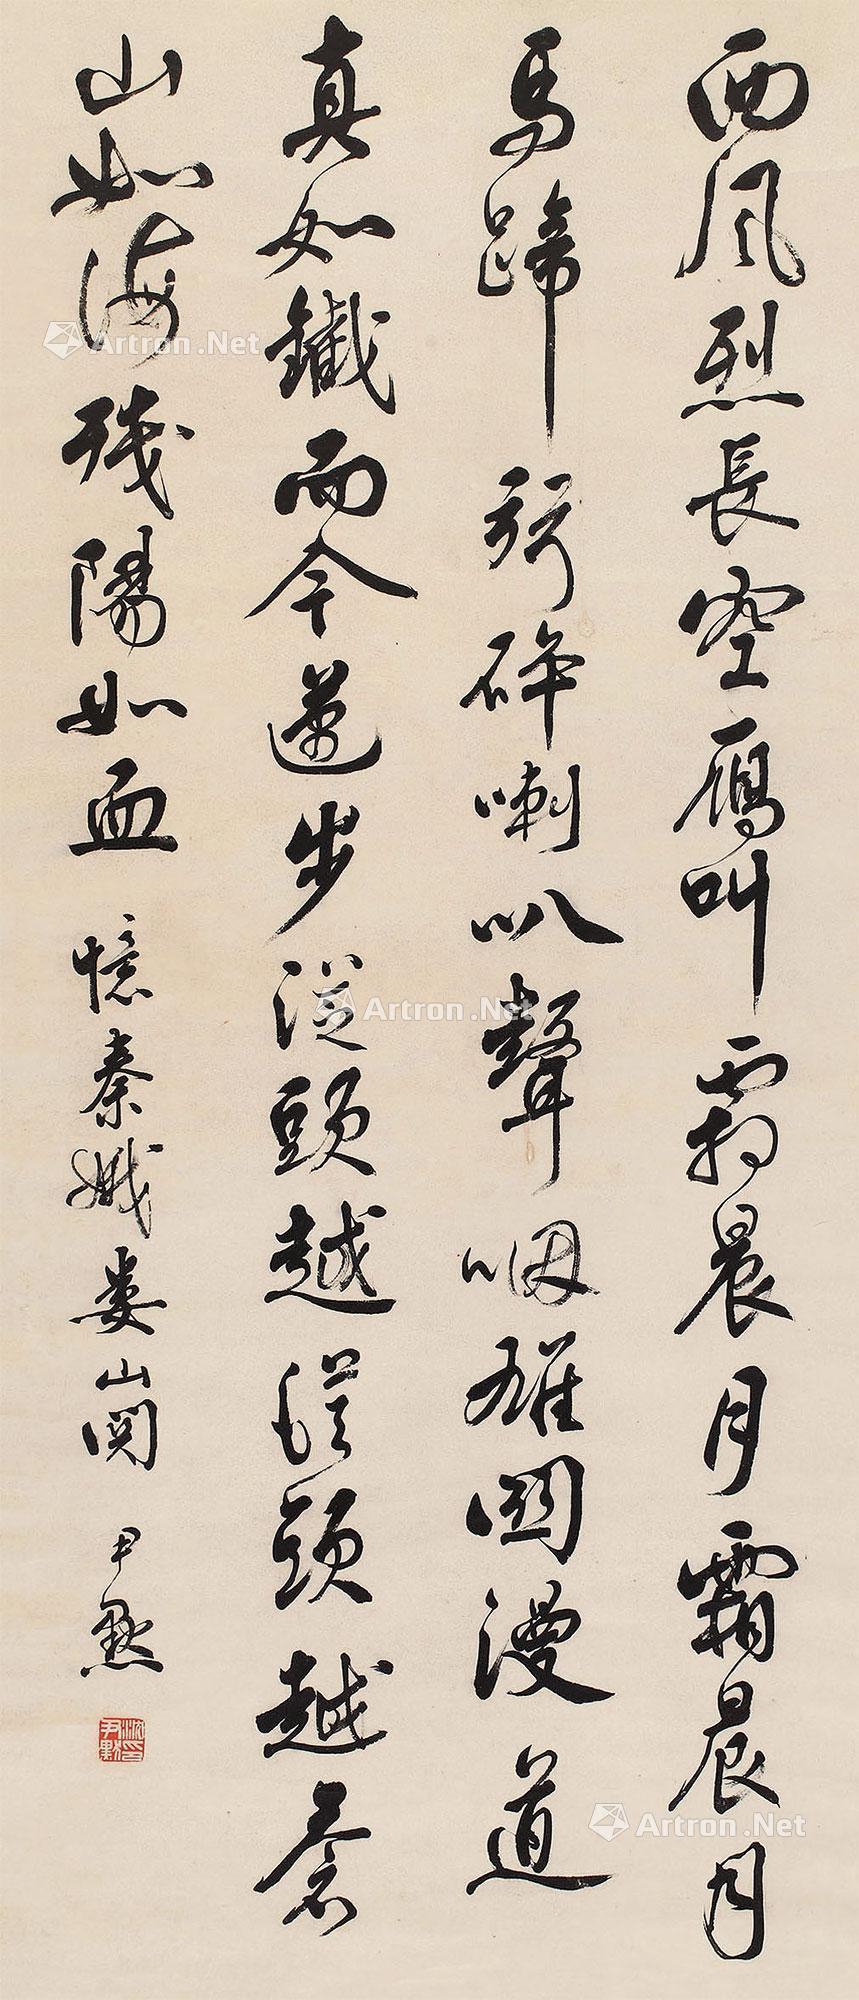 西風烈長空雁叫霜晨月霜晨月
馬蹄聲碎喇叭聲咽雄關漫道
真如鐵而今邁步從頭越從頭越蒼
山如海殘陽如血 憶秦娥婁山関 尹默
沈尹默印
Artron.Net
Artron.Net
Artron.Net